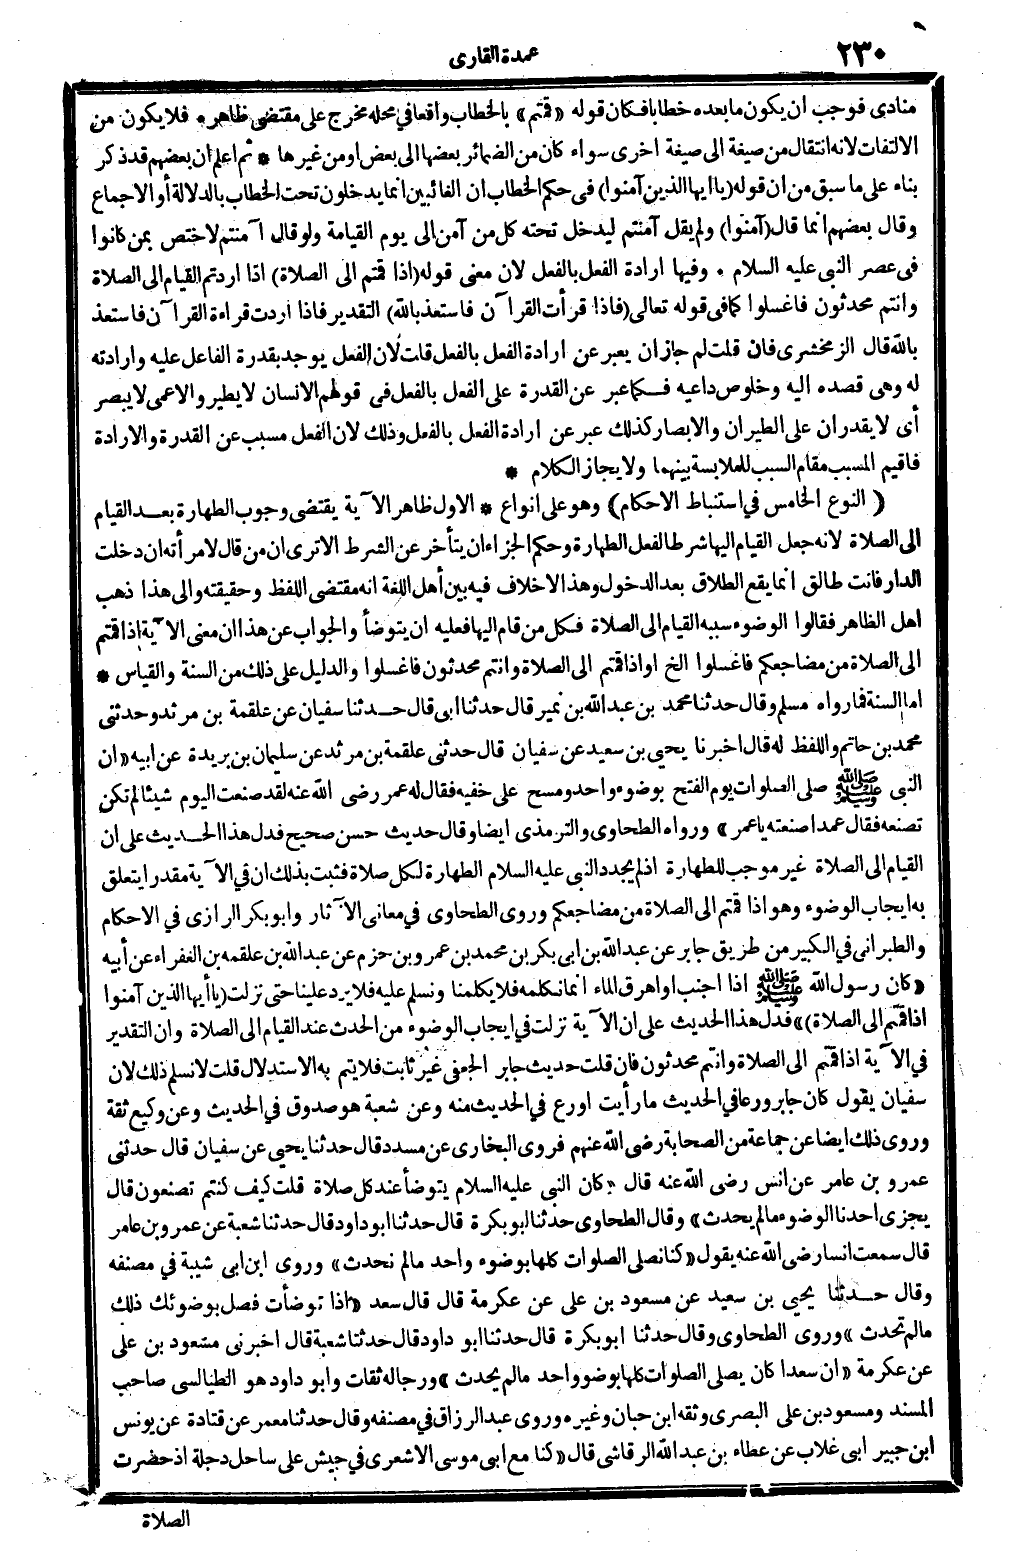 ٢٣٠
عمدة القارى
منادى فوجب ان يكون ما بعده خطابا فكان قوله « قمتم » بالخطاب واقعا فى محله مخرج على مقتضى ظاهره فلا يكون من
الالتفات لانه انتقال من صيغة الى صيغة اخرى سواء كان من الضمائر بعضها الى بعض او من غيرها * ثم اعلم ان بعضهم قد ذكر
بناء على ما سبق من ان قوله (يا ايها الذين آمنوا) فى حكم الخطاب ان الغائبين انما يدخلون تحت الخطاب بالدلالة أو الاجماع
وقال بعضهم انما قال (آمنوا) ولم يقل آمنتم ليدخل تحته كل من آمن الى يوم القيامة ولو قال آمنتم لاختص بمن كانوا
فى عصر النبى عليه السلام . وفيها ارادة الفعل بالفعل لان معنى قوله (اذا قمتم الى الصلاة) اذا اردتم القيام الى الصلاة
وانتم محدثون فاغسلوا كما فى قوله تعالى (فاذا قرأت القرآن فاستعذ بالله) التقدير فاذا اردت قراءة القرآن فاستعذ
بالله قال الزمخشرى فان قلت لم جاز ان يعبر عن ارادة الفعل بالفعل قلت لان الفعل يوجد بقدرة الفاعل عليه وارادته
له وهى قصده اليه وخلوص داعيه فكما عبر عن القدرة على الفعل بالفعل فى قولهم الانسان لا يطير والاعمى لا يبصر
أى لا يقدران على الطيران والابصار كذلك عبر عن ارادة الفعل بالفعل وذلك لان الفعل مسبب عن القدرة والارادة
فاقيم المسبب مقام السبب للملابسة بينهما ولا يجاز الكلام *
( النوع الخامس فى استنباط الاحكام) وهو على انواع * الاول ظاهر الآية يقتضى وجوب الطهارة بعد القيام
الى الصلاة لانه جعل القيام اليها شرطا لفعل الطهارة وحكم الجزاء ان يتأخر عن الشرط الا ترى ان من قال لامرأته ان دخلت
الدار فانت طالق انما يقع الطلاق بعد الدخول وهذا لاخلاف فيه بين أهل اللغة انه مقتضى اللفظ وحقيقته والى هذا ذهب
اهل الظاهر فقالوا الوضوء سببه القيام الى الصلاة فكل من قام اليها فعليه ان يتوضأ والجواب عن هذا ان معنى الآية اذا قمتم
الى الصلاة من مضاجعكم فاغسلوا الخ او اذا قمتم الى الصلاة وانتم محدثون فاغسلوا والدليل على ذلك من السنة والقياس *
اما السنة فما رواه مسلم وقال حدثنا محمد بن عبد الله بن نمير قال حدثنا ابى قال حدثنا سفيان عن علقمة بن مرثد وحدثنى
محمد بن حاتم واللفظ له قال اخبرنا يحيى بن سعيد عن سفيان قال حدثنى علقمة بن مرثد عن سليمان بن بريدة عن ابيه « ان
النبى ﷺ صلى الصلوات يوم الفتح بوضوء واحد ومسح على خفيه فقال له عمر رضى الله عنه لقد صنعت اليوم شيئا لم تكن
تصنعه فقال عمدا صنعته يا عمر » ورواه الطحاوى والترمذى ايضا وقال حديث حسن صحيح فدل هذا الحديث على ان
القيام الى الصلاة غير موجب للطهارة اذ لم يجدد النبى عليه السلام الطهارة لكل صلاة فثبت بذلك ان فى الآية مقدرا يتعلق
به ايجاب الوضوء وهو اذا قمتم الى الصلاة من مضاجعكم وروى الطحاوى فى معانى الآثار وابو بكر الرازى فى الاحكام
والطبرانى فى الكبير من طريق جابر عن عبد الله بن ابى بكر بن محمد بن عمرو بن حزم عن عبد الله بن علقمه بن الغفراء عن أبيه
« كان رسول الله ﷺ اذا اجنب او اهرق الماء انما نكلمه فلا يكلمنا ونسلم عليه فلا يرد علينا حتى نزلت (يا أيها الذين آمنوا
اذا قمتم الى الصلاة)» فدل هذا الحديث على ان الآية نزلت فى ايجاب الوضوء من الحدث عند القيام الى الصلاة وان التقدير
فى الآية اذا قمتم الى الصلاة وانتم محدثون فان قلت حديث جابر الجعفى غير ثابت فلا يتم به الاستدلال قلت لا نسلم ذلك لان
سفيان يقول كان جابر ورعا فى الحديث ما رأيت اورع فى الحديث منه وعن شعبة هو صدوق فى الحديث وعن وكيع ثقة
وروى ذلك ايضا عن جماعة من الصحابة رضى الله عنهم فروى البخارى عن مسدد قال حدثنا يحيى عن سفيان قال حدثنى
عمرو بن عامر عن انس رضى الله عنه قال « كان النبى عليه السلام يتوضأ عند كل صلاة قلت كيف كنتم تصنعون قال
يجزى احدنا الوضوء ما لم يحدث » وقال الطحاوى حدثنا ابو بكرة قال حدثنا ابو داود قال حدثنا شعبة عن عمرو بن عامر
قال سمعت انسا رضى الله عنه يقول « كنا نصلى الصلوات كلها بوضوء واحد ما لم نحدث » وروى ابن ابى شيبة فى مصنفه
وقال حدثنا يحيى بن سعيد عن مسعود بن على عن عكرمة قال قال سعد « اذا توضأت فصل بوضوئك ذلك
ما لم تحدث » وروى الطحاوى وقال حدثنا ابو بكرة قال حدثنا ابو داود قال حدثنا شعبة قال اخبرنى مسعود بن على
عن عكرمة « ان سعدا كان يصلى الصلوات كلها بوضوء واحد ما لم يحدث » ورجاله ثقات وابو داود هو الطيالسى صاحب
المسند ومسعود بن على البصرى وثقه ابن حبان وغيره وروى عبد الرزاق فى مصنفه وقال حدثنا معمر عن قتادة عن يونس
ابن جبير ابى غلاب عن عطاء بن عبد الله الرقاشى قال « كنا مع ابى موسى الاشعرى فى جيش على ساحل دجلة اذ حضرت
الصلاة